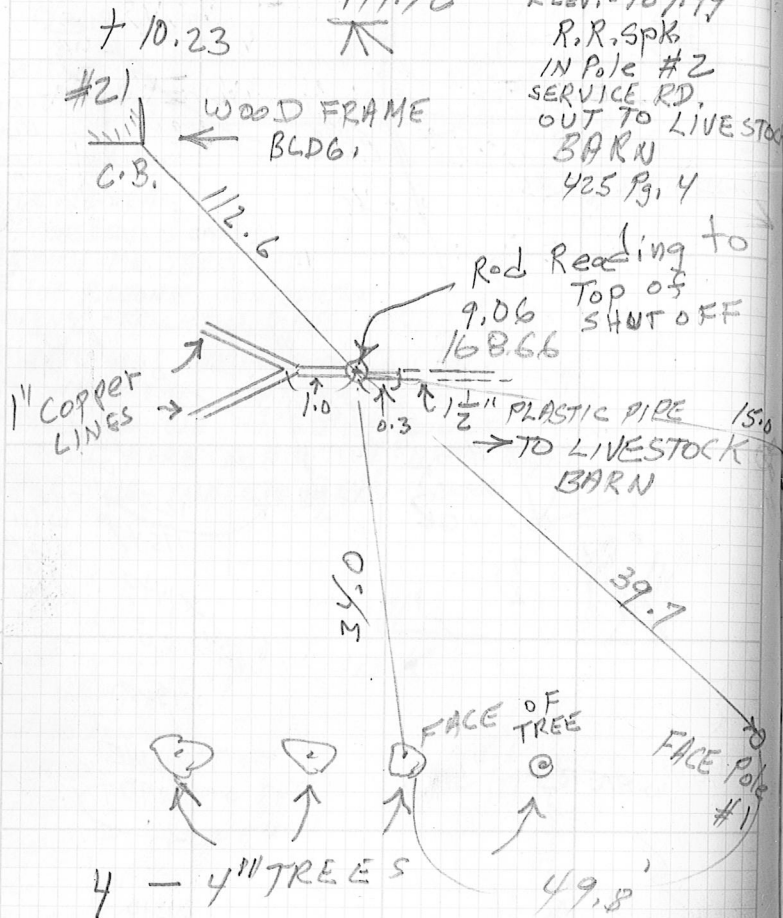 + 10.23
R.R. Spk
IN Pole #2
SERVICE RD.
OUT TO LIVESTOC
BARN
425 Pg. 4
#21
WOOD FRAME
BLDG.
C.B.
112.6
Rod Reading to
Top of
SHUT OFF
9.06
168.66
1" Copper
LINES
1.0
0.3
1 1/2" PLASTIC PIPE
15.0
TO LIVESTOCK
BARN
39.7
FACE OF
TREE
FACE Pole
#1
4 - 4" TREES
49.8'